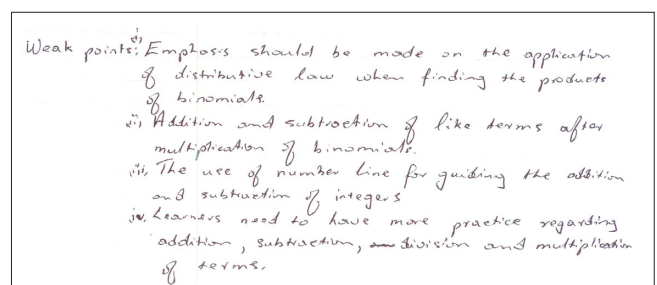 Weak points: i) Emphasis should be made on the application
of distributive law when finding the products
of binomials.
ii) Addition and subtraction of like terms after
multiplication of binomials.
iii) The use of number line for guiding the addition
and subtraction of integers
iv. Learners need to have more practice regarding
addition, subtraction, division and multiplication
of terms.